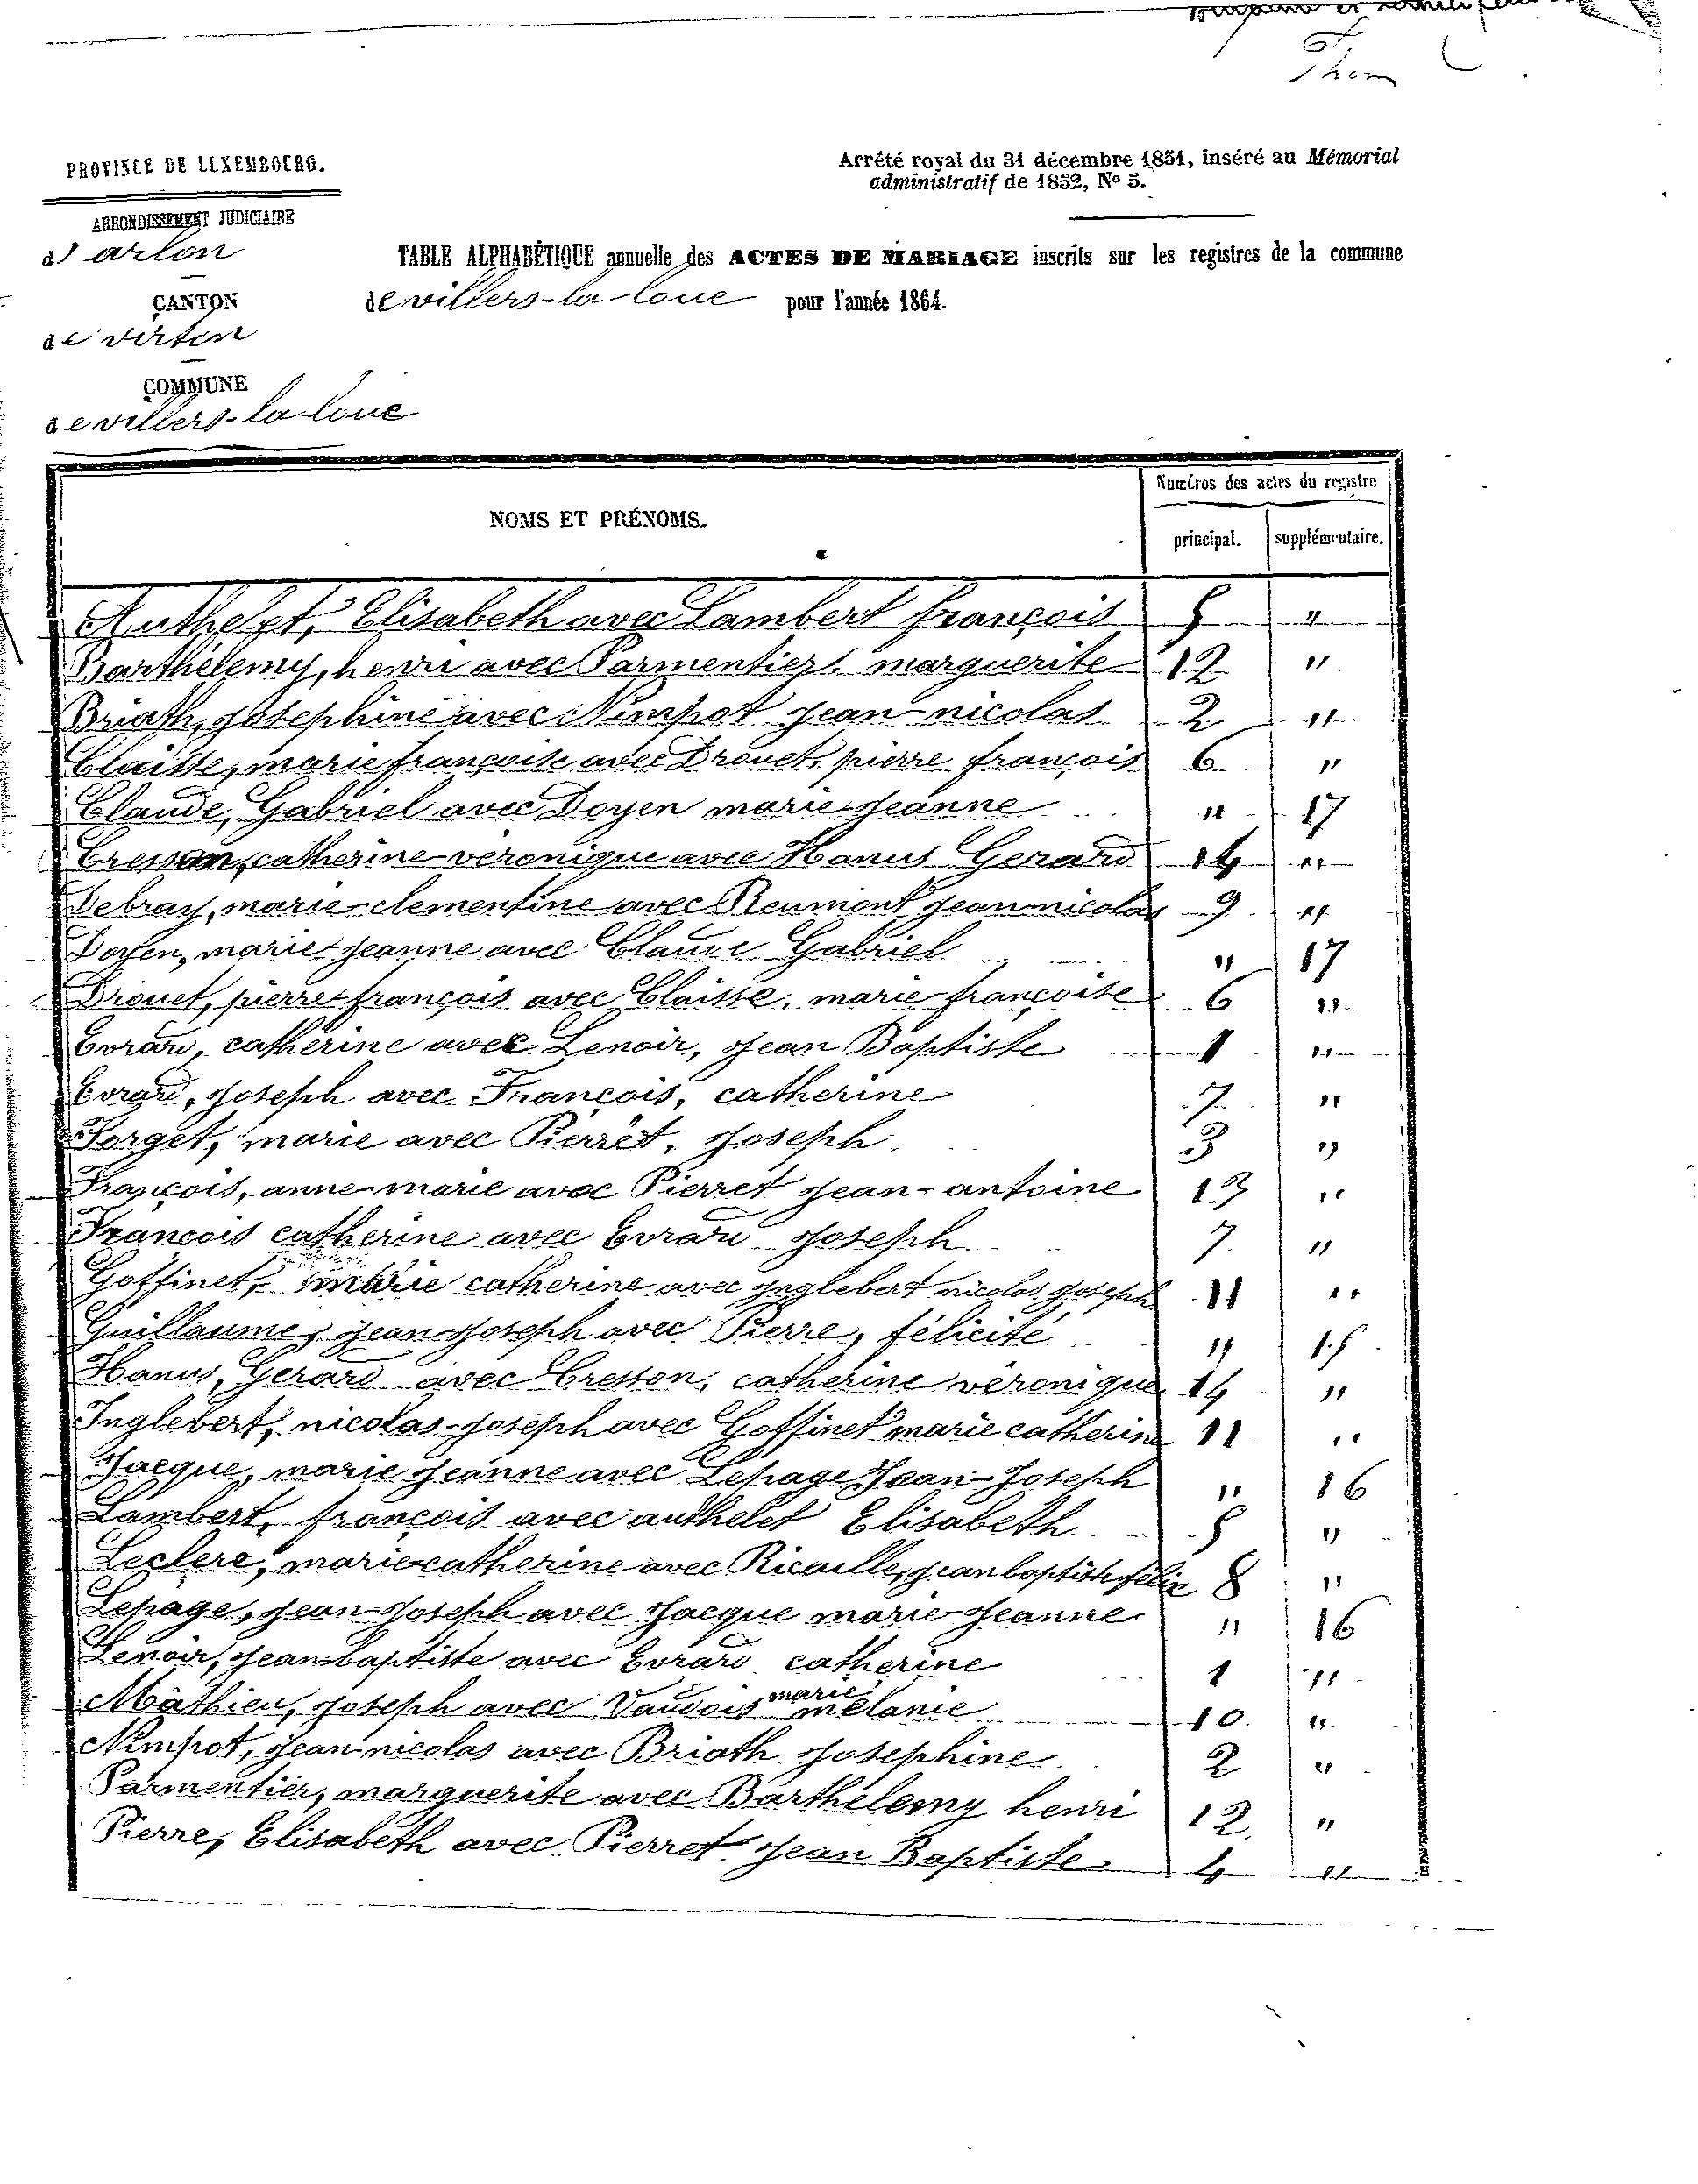 PROVINCE DE LUXEMBOURG.
Arrêté royal du 31 décembre 1851, inséré au Mémorial
administratif de 1852, No 5.
ARRONDISSEMENT JUDICIAIRE
d'arlon
CANTON
de virton
COMMUNE
de villers-la-loue
TABLE ALPHABÉTIQUE annuelle des ACTES DE MARIAGE inscrits sur les registres de la commune
de villers-la-loue pour l'année 1864.
NOMS ET PRÉNOMS.
Numéros des actes du registre
principal. supplémentaire.
Authelet, Elisabeth avec Lambert françois 5 "
Barthélemy, henri avec Parmentier, marguerite 12 "
Briath, Josephine avec Nimpot Jean-nicolas 2 "
Claisse, marie françoise avec Drouet, pierre françois 6 "
Claude, Gabriel avec Doyen marie-Jeanne " 17
Cresson, catherine-véronique avec Hanus Gerard 14 "
Debray, marie-clementine avec Reumont Jean-nicolas 9 "
Doyen, marie-Jeanne avec Claude Gabriel " 17
Drouet, pierre-françois avec Claisse, marie-françoise 6 "
Evrard, catherine avec Lenoir, Jean Baptiste 1 "
Evrard, Joseph avec François, catherine 7 "
Forget, marie avec Pierret, Joseph 3 "
François, anne-marie avec Pierret Jean-antoine 13 "
François catherine avec Evrard Joseph 7 "
Goffinet, marie catherine avec Inglebert nicolas Joseph 11 "
Guillaume, Jean-Joseph avec Pierre, félicité " 15
Hanus, Gerard avec Cresson, catherine véronique 14 "
Inglebert, nicolas-Joseph avec Goffinet marie catherine 11 "
Jacque, marie Jeanne avec Lepage Jean-Joseph " 16
Lambert, françois avec authelet Elisabeth 5 "
Leclerc, marie-catherine avec Ricaille, Jean baptiste félix 8 "
Lepage, Jean-Joseph avec Jacque marie-Jeanne " 16
Lenoir, Jean-baptiste avec Evrard catherine 1 "
Mathieu, Joseph avec Vaudois marie mélanie 10 "
Nimpot, Jean-nicolas avec Briath Josephine 2 "
Parmentier, marguerite avec Barthélemy henri 12 "
Pierre, Elisabeth avec Pierret Jean Baptiste 4 "